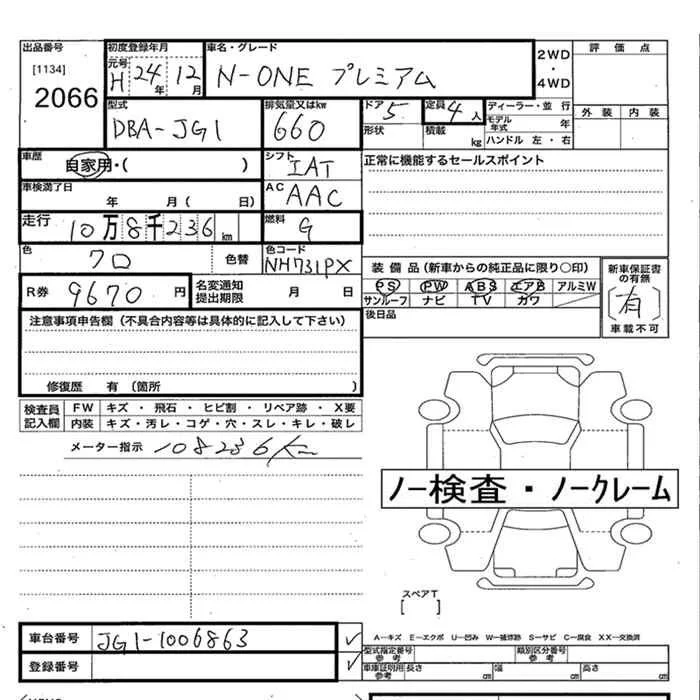 出品番号 初度登録年月 車名・グレード 2WD 評価点
[1134] 元号 H 24年 12月 N-ONE プレミアム ・
2066 4WD
型式 排気量又はkw ドア 5 定員 4人 ディーラー・並行 外装 内装
DBA-JG1 660 形状 積載 kg モデル年式 年
ハンドル 左・右
車歴 自家用・( ) シフト IAT 正常に機能するセールスポイント
車検満了日 年 月( 日) AC AAC
走行 10万8千236km 燃料 G
色 クロ 色替 色コード NH731PX
装備品(新車からの純正品に限り○印) 新車保証書の有無
R券 9670円 名変通知提出期限 月 日 PS PW ABS エアB アルミW [有]
サンルーフ ナビ TV カワ
後日品 車載不可
注意事項申告欄(不具合内容等は具体的に記入して下さい)
修復歴 有(箇所 )
検査員記入欄 FW キズ・飛石・ヒビ割・リペア跡・X要
内装 キズ・汚レ・コゲ・穴・スレ・キレ・破レ
メーター指示 108236Km
ノー検査・ノークレーム
スペアT
[ ]
車台番号 JG1-1006863 ✓ A−キズ E−エクボ U−凹み W−補修跡 S−サビ C−腐食 XX−交換済
型式指定番号参考 類別区分番号参考
登録番号 ✓ 車庫証明用参考 長さ cm 幅 cm 高さ cm